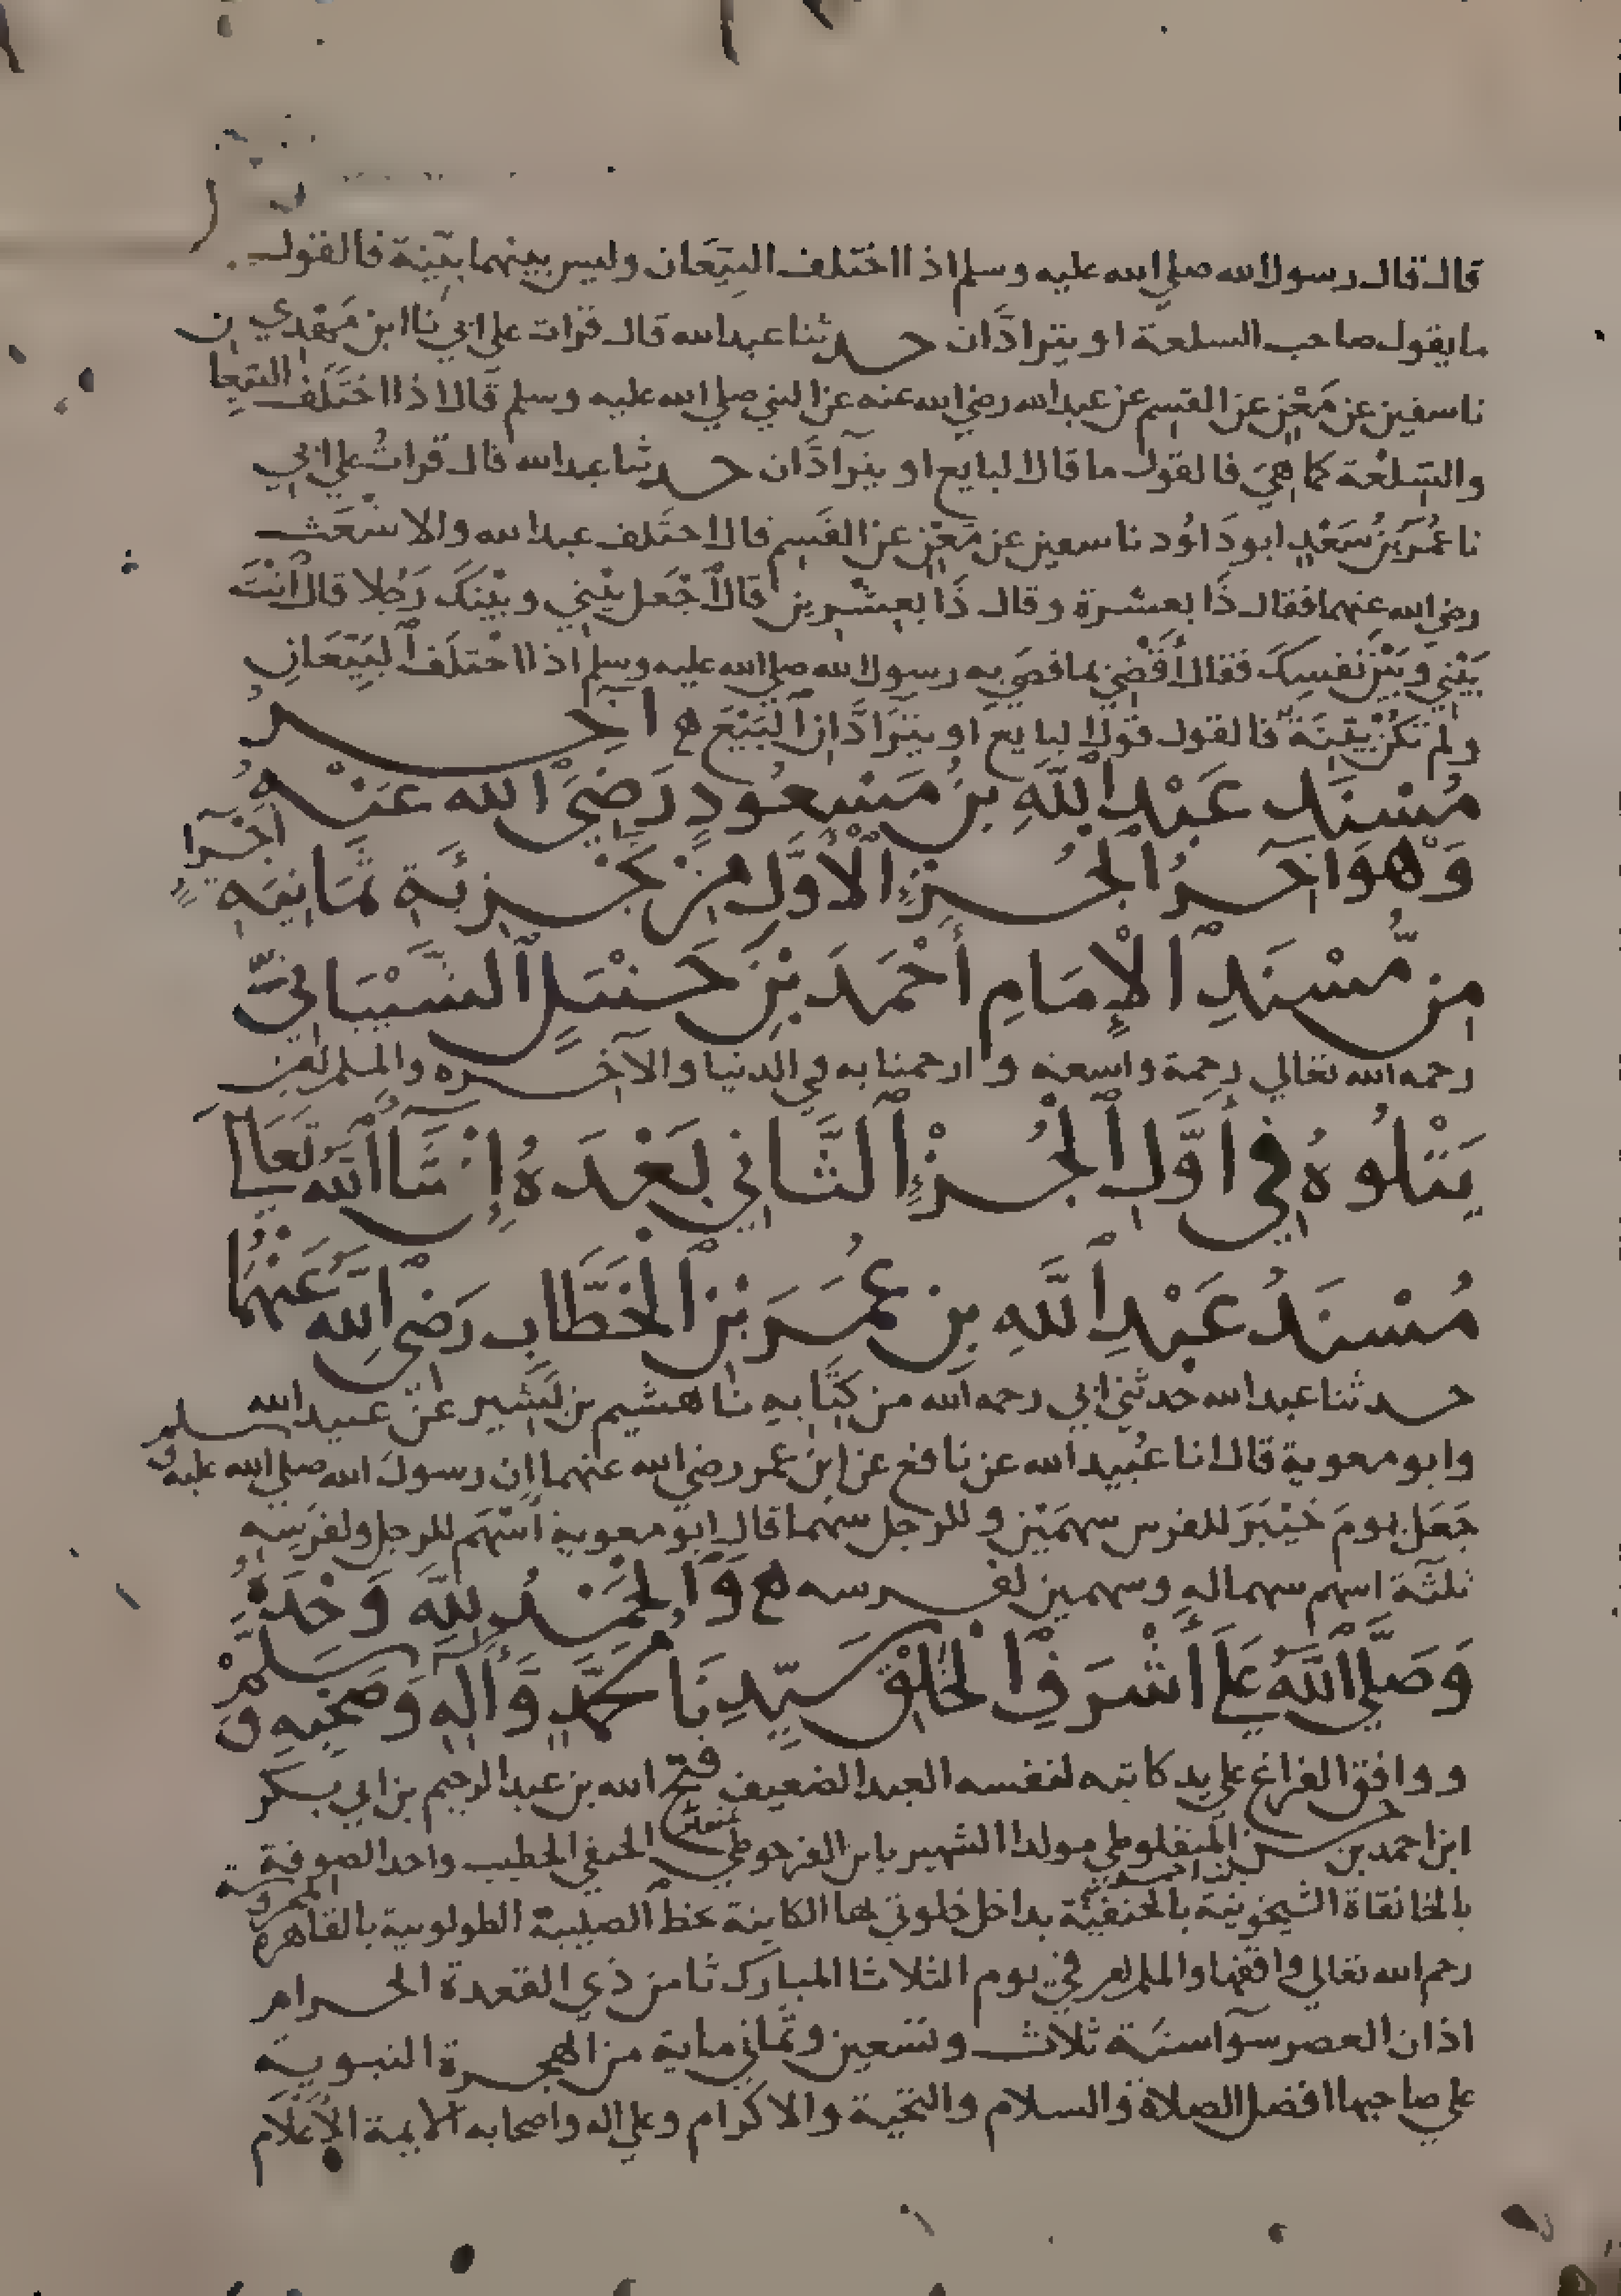 قال قال رسول الله صلي الله عليه وسلم اذا اختلف البيّعان وليس بينهما بيّنة فالقول
ما يقول صاحب السلعة او يترادّان حدثنا عبد الله قال قرات علي ابي نا ابن مَهْدي ن
نا سفين عن مَعْنٍ عن القسم عن عبد الله رضي الله عنه عن النبي صلي الله عليه وسلم قال اذا اختَلَف البيّعان
والسّلعة كما هيَ فالقول ما قال البايع او يترادّان حدثنا عبد الله قال قراتُ علي ابي
نا عُمَر بن سَعْدٍ ابو دَاوُد نا سفين عن مَعْنٍ عن القَسِم قال اختَلف عبد الله والاشْعَث
رضي الله عنهما فقال ذَا بعشرة وقال ذَا بعشرين قال اَجْعَل بيْني وبيْنَكَ رَجُلا قال اَنْتَ
بَيْنِي وَبَيْن نَفسِكَ فقال أَقْضِي بما قضَي به رسول الله صلي الله عليه وسلم اذا اخْتلَفَ البَيِّعَانِ
ولم تَكُن بيّنَةٌ فالقول قول البايع او يتَرَادَّانِ البَيْعَ آخِرُ
مُسْنَدِ عَبْدِ اللَّهِ بنِ مَسْعُودٍ رَضِيَ الله عَنْهُ
وَهوَ آخِرُ الجُزءِ الأوَّلِ مِن تَجْزِئَةِ ثمَانِيَةِ اجْزاءٍ
مِن مُّسْنَدِ الْإِمَامِ أَحْمَدَ بْنِ حَنبَلٍ الشَّيْبَانيِّ
رحمه الله تعالي رحمة واسعة وارحمنا به في الدنيا والآخره والمسلمين
يَتْلُوهُ فِي أوَّلِ الجُزْءِ الثَّانِي بَعْدَهُ إِن شَاءَ اللَّهُ تَعَالَي
مُسْنَدُ عَبْدِ اللَّهِ بنِ عُمَرَ بْنِ الخَطَّابِ رَضِيَ اللَّه عَنْهُمَا
حدثنا عبد الله حدثني ابي رحمه الله من كتَابه نا هشيم بن بَشير عن عبيد الله
وابو معوية قال انا عُبيد الله عن نافع عن ابن عمر رضي الله عنهما ان رسول الله صلي الله عليه وسلم
جَعَل يومَ خَيْبَرَ للفرس سهمَيْن وللرجل سهما قال ابو معوية اَسْهَم للرجل ولفرَسِه
ثلثة اسهم سهما له وسهمين لفرسه وَالحَمْدُ لِلَّهِ وَحْدَهُ
وَصَلَّي اللَّهُ عَلَي أَشْرَفِ الخَلْقِ سَيِّدِنَا مُحَمَّدٍ وَّآلِهِ وَصَحْبِهِ وَسَلَّمْ
ووافق الفراغ علي يد كاتبه لنفسه العبد الضعيف فتح الله بن عبد الرحيم بن ابي بكر
ابن احمد بن حسن بن احمد المنفلوطي مولدا الشهير بابن الفرجوطي الحنفي الخطيب واحد الصوفة
بالخانقاة الشيخونية بالحنفيّة بداخل خلوتي بها الكاينة بخط الصليبة الطولونية بالقاهرة المحروسة
رحم الله تعالي واقفها والمسلمين في يوم الثلاثا المبارك ثامن ذي القعدة الحرام
اذان العصر سوآ سنة ثلاث وتسعين وثماني ماية من الهجرة النبوية
علي صاحبها افضل الصلاة والسلام والتحية والاكرام وعلي اله واصحابه الايمة الأعْلَام